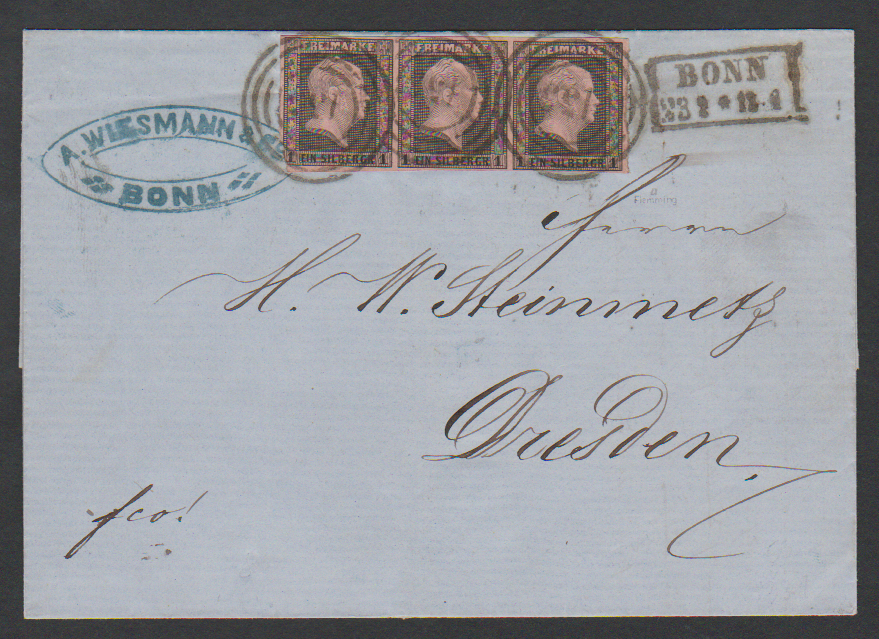 FREIMARKE FREIMARKE FREIMARKE
1 EIN SILBERGR. 1 1 EIN SILBERGR. 1 1 EIN SILBERGR. 1
BONN
A. WIESMANN & Co
BONN
Flemming
Herrn
H. W. Steinmetz
Dresden.
fco!